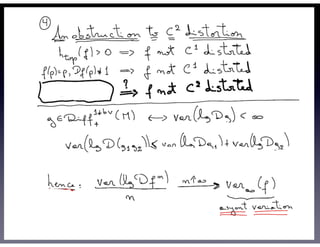 ④
An obstruction to C² distortion
h_top(f) > 0 ⟹ f not C¹ distorted
f(p)=p, Df(p)≠1 ⟹ f not C¹ distorted
?⟹ f not C² distorted
g ∈ Diff₊^{1+bv}(M) ⟷ var(log Dg) < ∞
var(log D(g₁g₂)) ≤ var(log Dg₁) + var(log Dg₂)
hence: var(log Df^n)/n —n↑∞→ var_∞(f)
asympt. variation